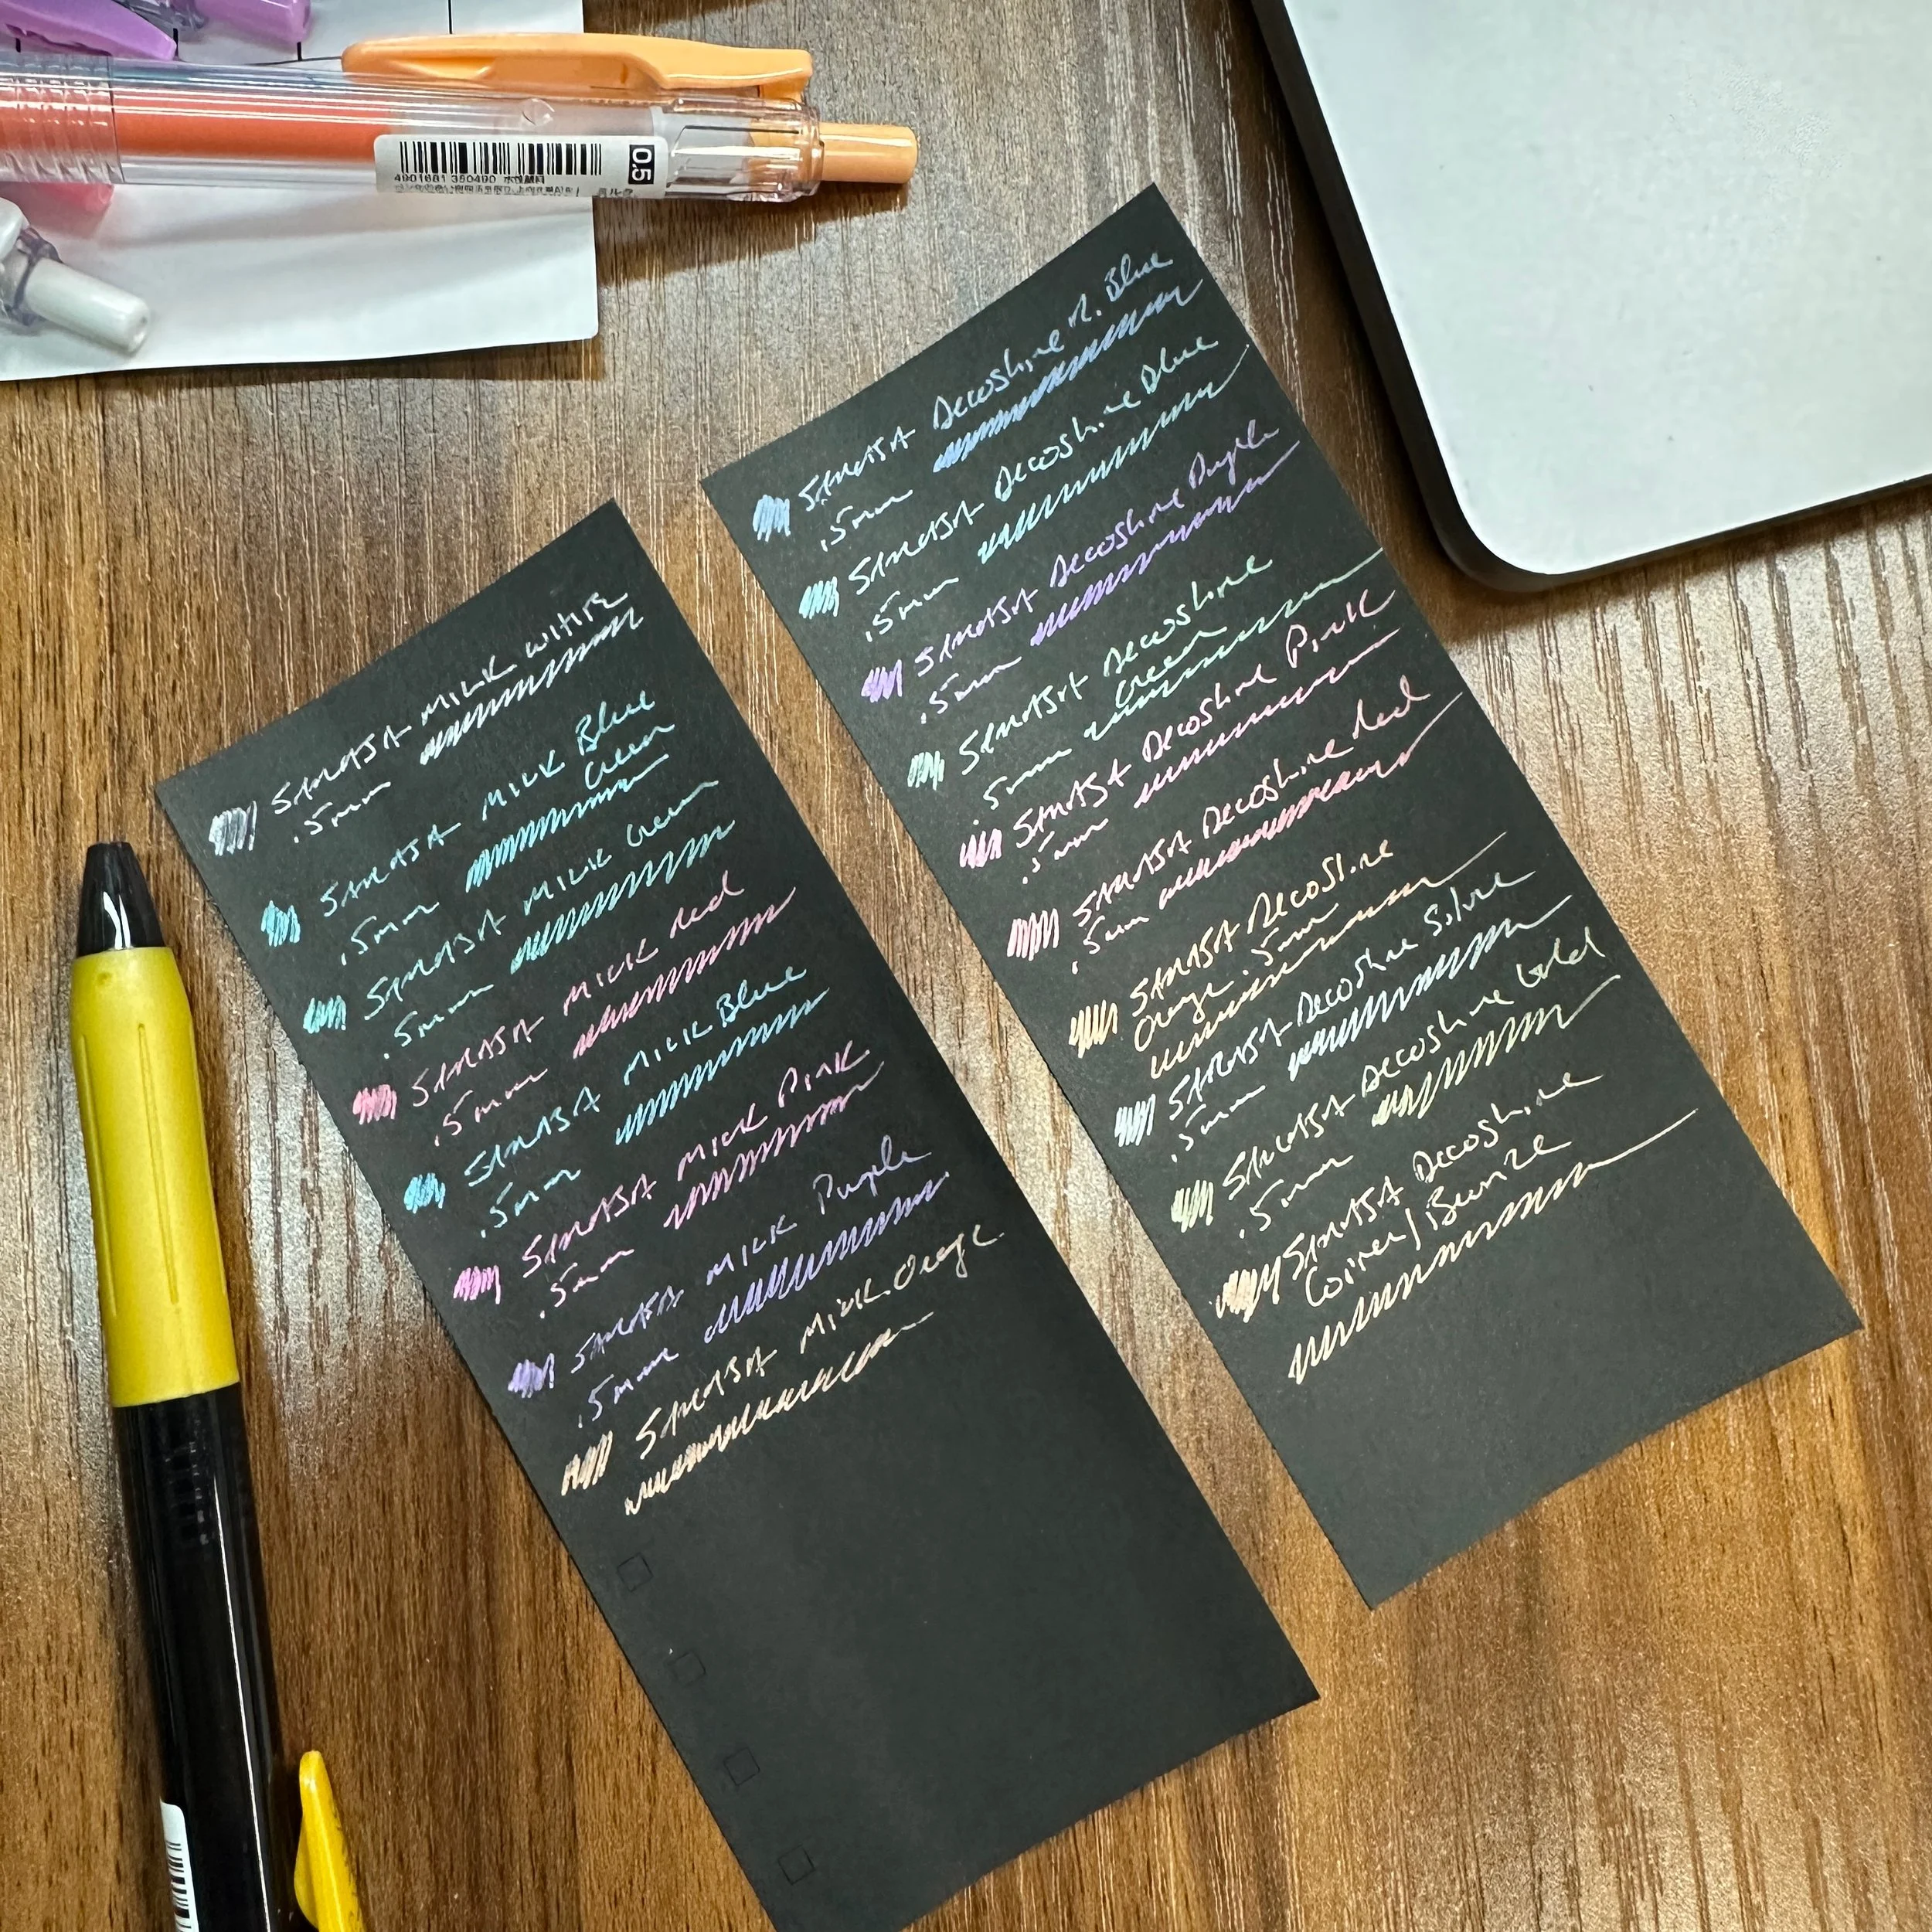 0.5
4901681 350490 水性顔料
SARASA MILK White
.5mm
SARASA MILK Blue
Green
.5mm
SARASA MILK Green
.5mm
SARASA MILK Red
.5mm
SARASA MILK Blue
.5mm
SARASA MILK Pink
.5mm
SARASA MILK Purple
.5mm
SARASA MILK Orange
SARASA Decoshine R. Blue
.5mm
SARASA Decoshine Blue
.5mm
SARASA Decoshine Purple
.5mm
SARASA Decoshine
Green
.5mm
SARASA Decoshine Pink
.5mm
SARASA Decoshine Red
.5mm
SARASA Decoshine
Orange .5mm
SARASA Decoshine Silver
.5mm
SARASA Decoshine Gold
.5mm
SARASA Decoshine